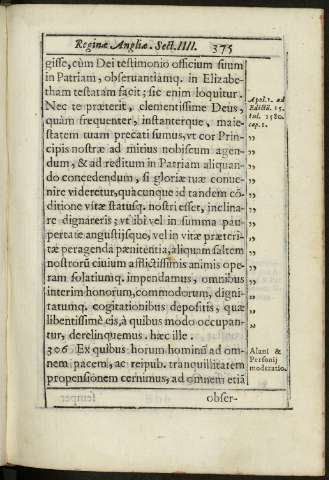 Reginæ Angliæ. Sect. IIII. 375
gisse, cùm Dei testimonio officium suum
in Patriam, obseruantiamq. in Elizabe-
tham testatam facit; sic enim loquitur.
Nec te præterit, clementissime Deus,
quàm frequenter, instanterque, maie-
statem tuam precati sumus, vt cor Prin-
cipis nostræ ad mitius nobiscum agen-
dum, & ad reditum in Patriam aliquan-
do concedendum, si gloriæ tuæ conue-
nire videretur, quacunque id tandem cō-
ditione vitæ statusq. nostri esset, inclina-
re dignareris; vt ibi vel in summa pau-
pertate angustijsque, vel in vitæ præteri-
tæ peragenda pænitentia, aliquam saltem
nostrorū ciuium afflictissimis animis ope-
ram solatiumq. impendamus, omnibus
interim honorum, commodorum, digni-
tatumq. cogitationibus depositis, quæ
libentissimè eis, à quibus modo occupan-
tur, derelinquemus. hæc ille.
306 Ex quibus horum hominū ad om-
nem pacem, ac reipub. tranquilitatem
propensionem cernimus, ad omnem etiā
obser-
Apol. 1. ad
Edictū. 15.
Iul. 1580.
cap. 1.
„
„
„
„
„
„
„
„
„
„
„
„
„
Alani &
Personij
moderatio.